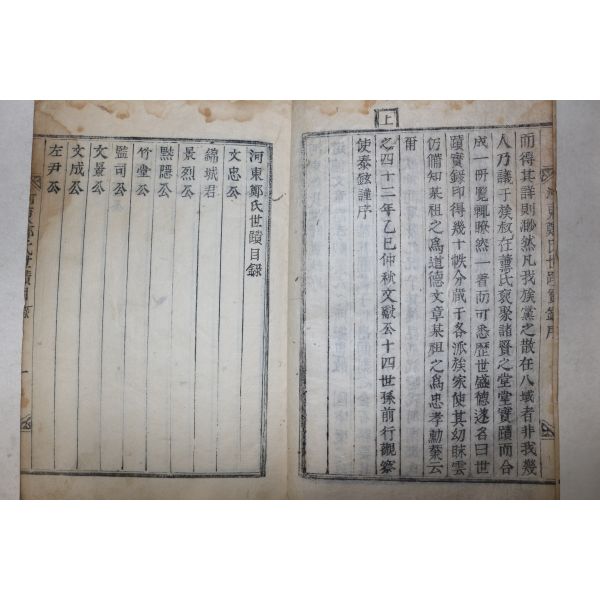 河東鄭氏世蹟實錄序
而得其詳則渺然凡我族黨之散在八域者非我幾
人乃議于族叔在護氏裒聚諸賢之堂堂實蹟而合
成一冊覽輒瞭然一者而可悉歷世盛德遂名曰世
蹟實錄印得幾十帙分藏于各派族家使其幼昧雲
仍備知某祖之爲道德文章某祖之爲忠孝勳業云
爾
上
之四十二年乙巳仲秋文獻公十四世孫前行觀察
使泰鉉謹序
河東鄭氏世蹟目錄
文忠公
錦城君
景烈公
默隱公
竹堂公
監司公
文景公
文成公
左尹公